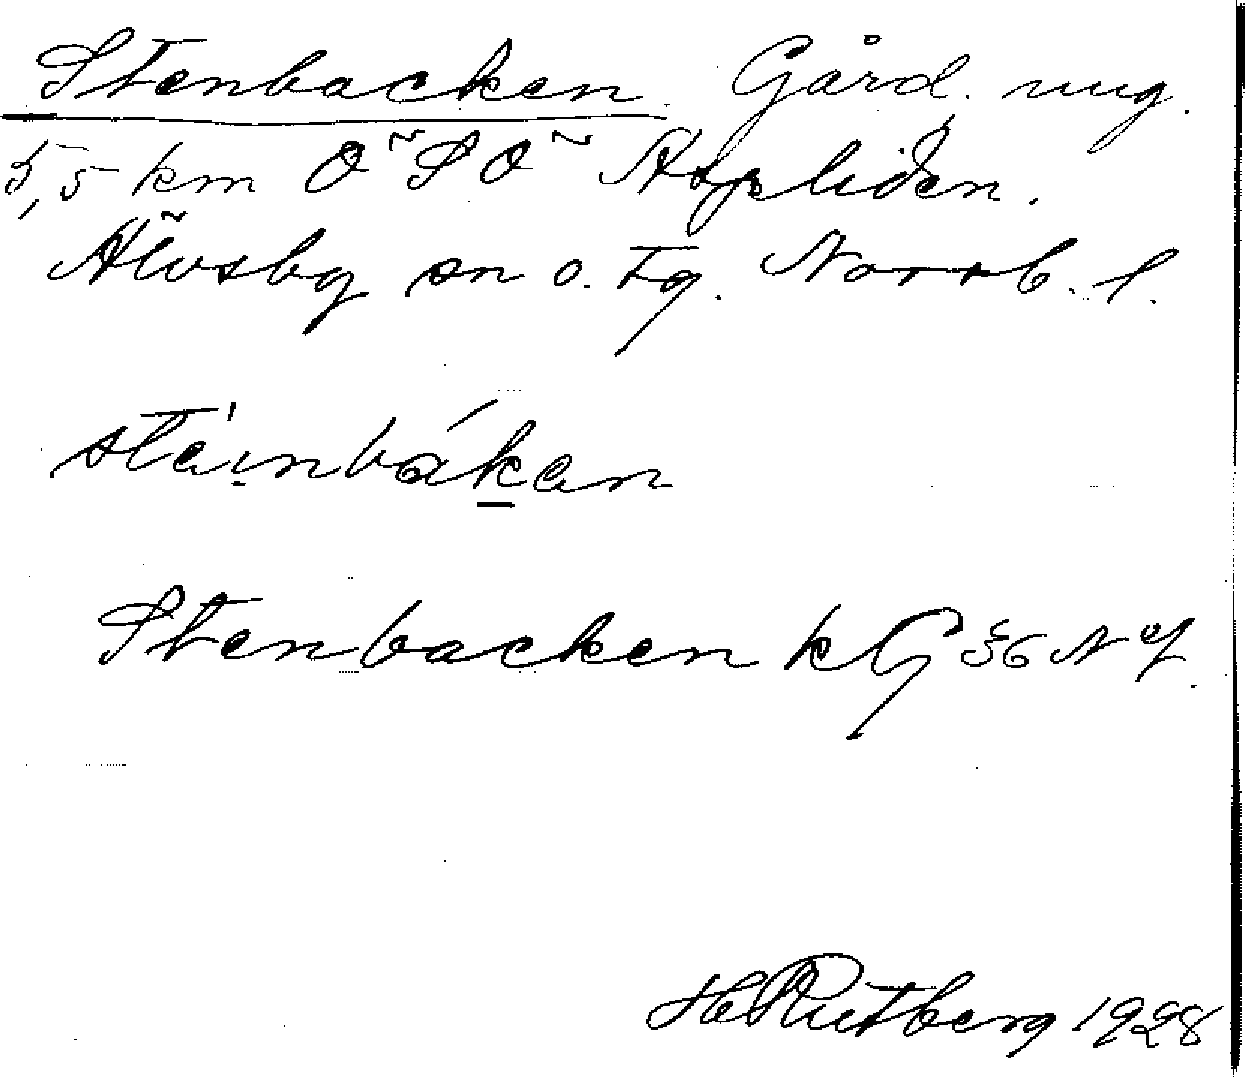 Stenbacken. Gård. ung.
5,5 km ÖSÖ Aspliden.
Älvsby sn o. tg. Norrb. l.
stei̯nbákan
Stenbacken k G 36 NV.
H Rutberg 1928